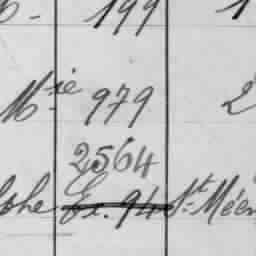 199 1
Mie 979 2
2564
Ex. 94 St Méen